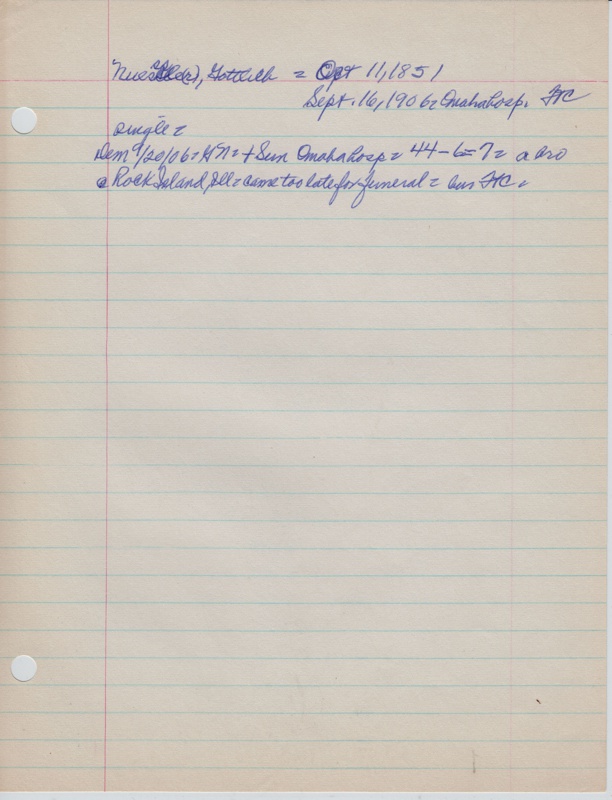 Gottlieb = Oct 11, 1851
Sept. 16, 1906 = Omaha hosp. FC
single =
Dem 9/20/06 = = + Sun Omaha hosp = 44-6-7 = a bro
@ Rock Island, Ill = came too late for funeral = bur FC =